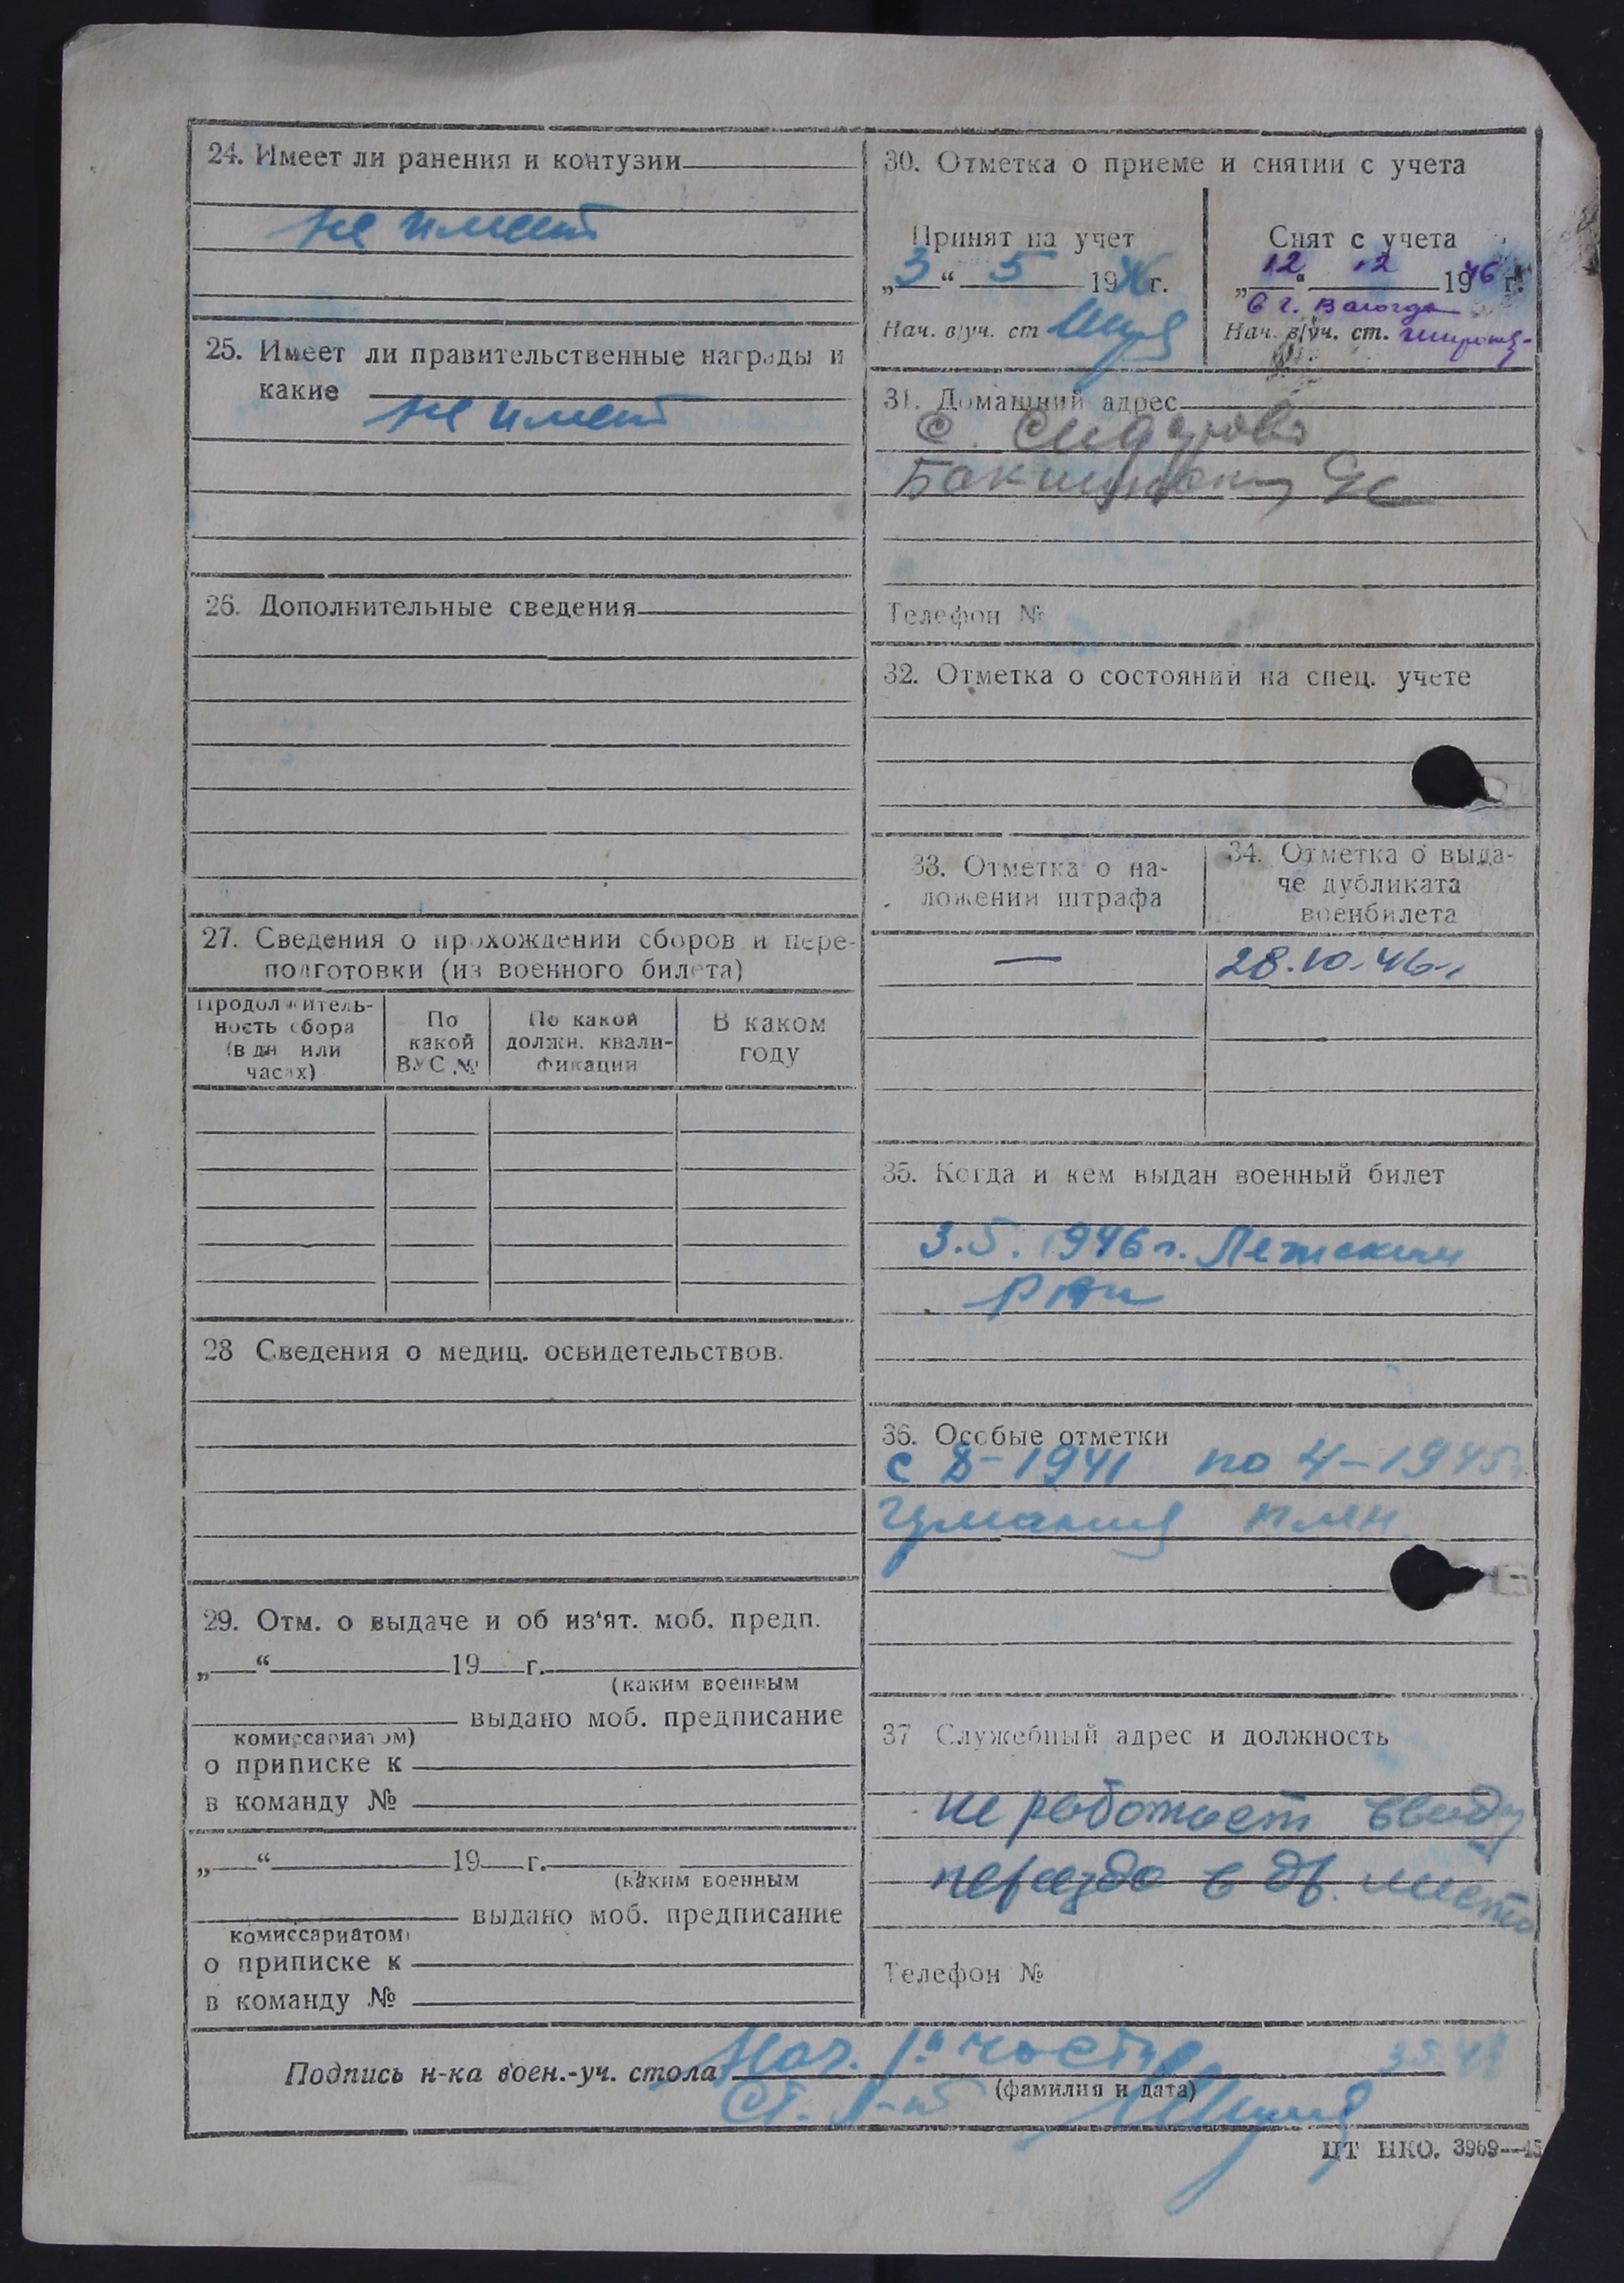 24. Имеет ли ранения и контузии
не имеет
25. Имеет ли правительственные награды и
какие
не имеет
26. Дополнительные сведения
27. Сведения о прохождении сборов и пере-
подготовки (из военного билета)
Продолжитель-
ность сбора
(в дн или
часах)
По
какой
ВУС №
По какой
должн. квали-
фикации
В каком
году
28 Сведения о медиц. освидетельствов.
29. Отм. о выдаче и об из‘ят. моб. предп.
„ “ 19 г.
(каким военным
выдано моб. предписание
комиссариатом)
о приписке к
в команду №
„ “ 19 г.
(каким военным
выдано моб. предписание
комиссариатом)
о приписке к
в команду №
30. Отметка о приеме и снятии с учета
Принят на учет
„3“ 5 1946 г.
Нач. в/уч. ст
Снят с учета
„12“ 12 1946 г.
в г. Вологда
Нач. в/уч. ст.
31. Домашний адрес
с.
Телефон №
32. Отметка о состоянии на спец. учете
33. Отметка о на-
ложении штрафа
—
34. Отметка о выда-
че дубликата
военбилета
28.10.46 г.
35. Когда и кем выдан военный билет
3.5.1946 г. Лежским
РВК
36. Особые отметки
с 8-1941 по 4-1945
плен
37 Служебный адрес и должность
не работает ввиду
переезда в др. место
Телефон №
Подпись н-ка воен.-уч. стола Нач. 1й части
(фамилия и дата)
Ст. л-нт
ЦТ НКО. 3969—45